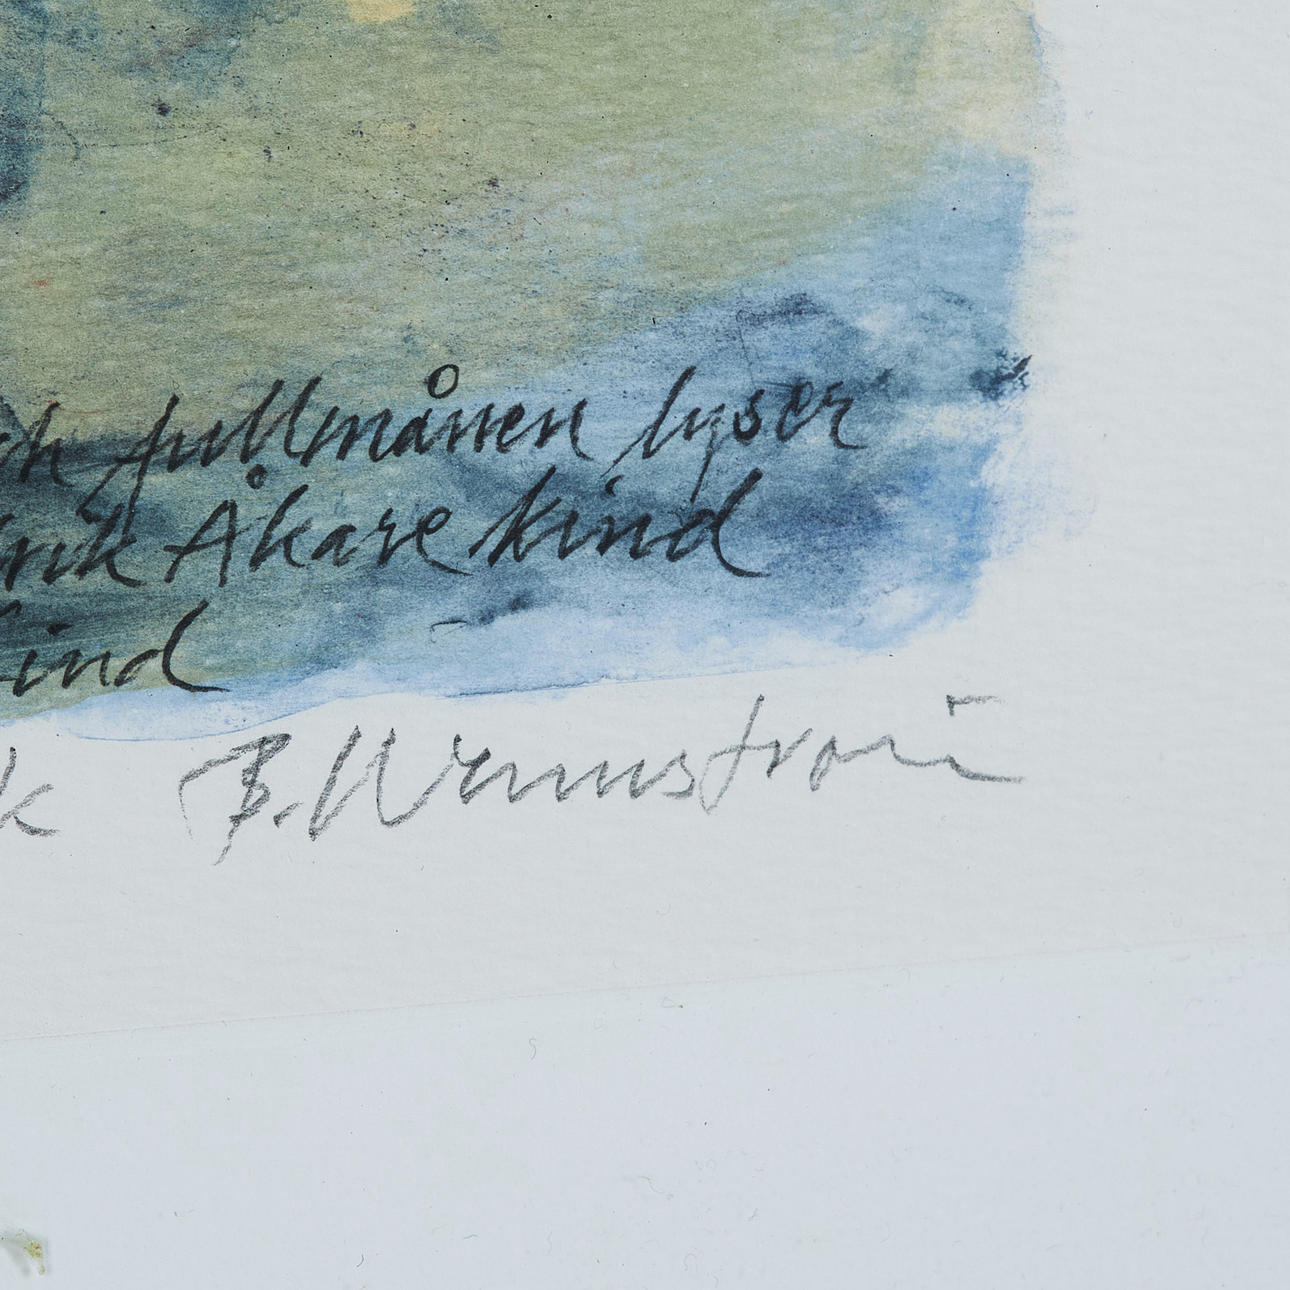 ch fullmånen lyser
Åkare kind
kind
k B. Wennström